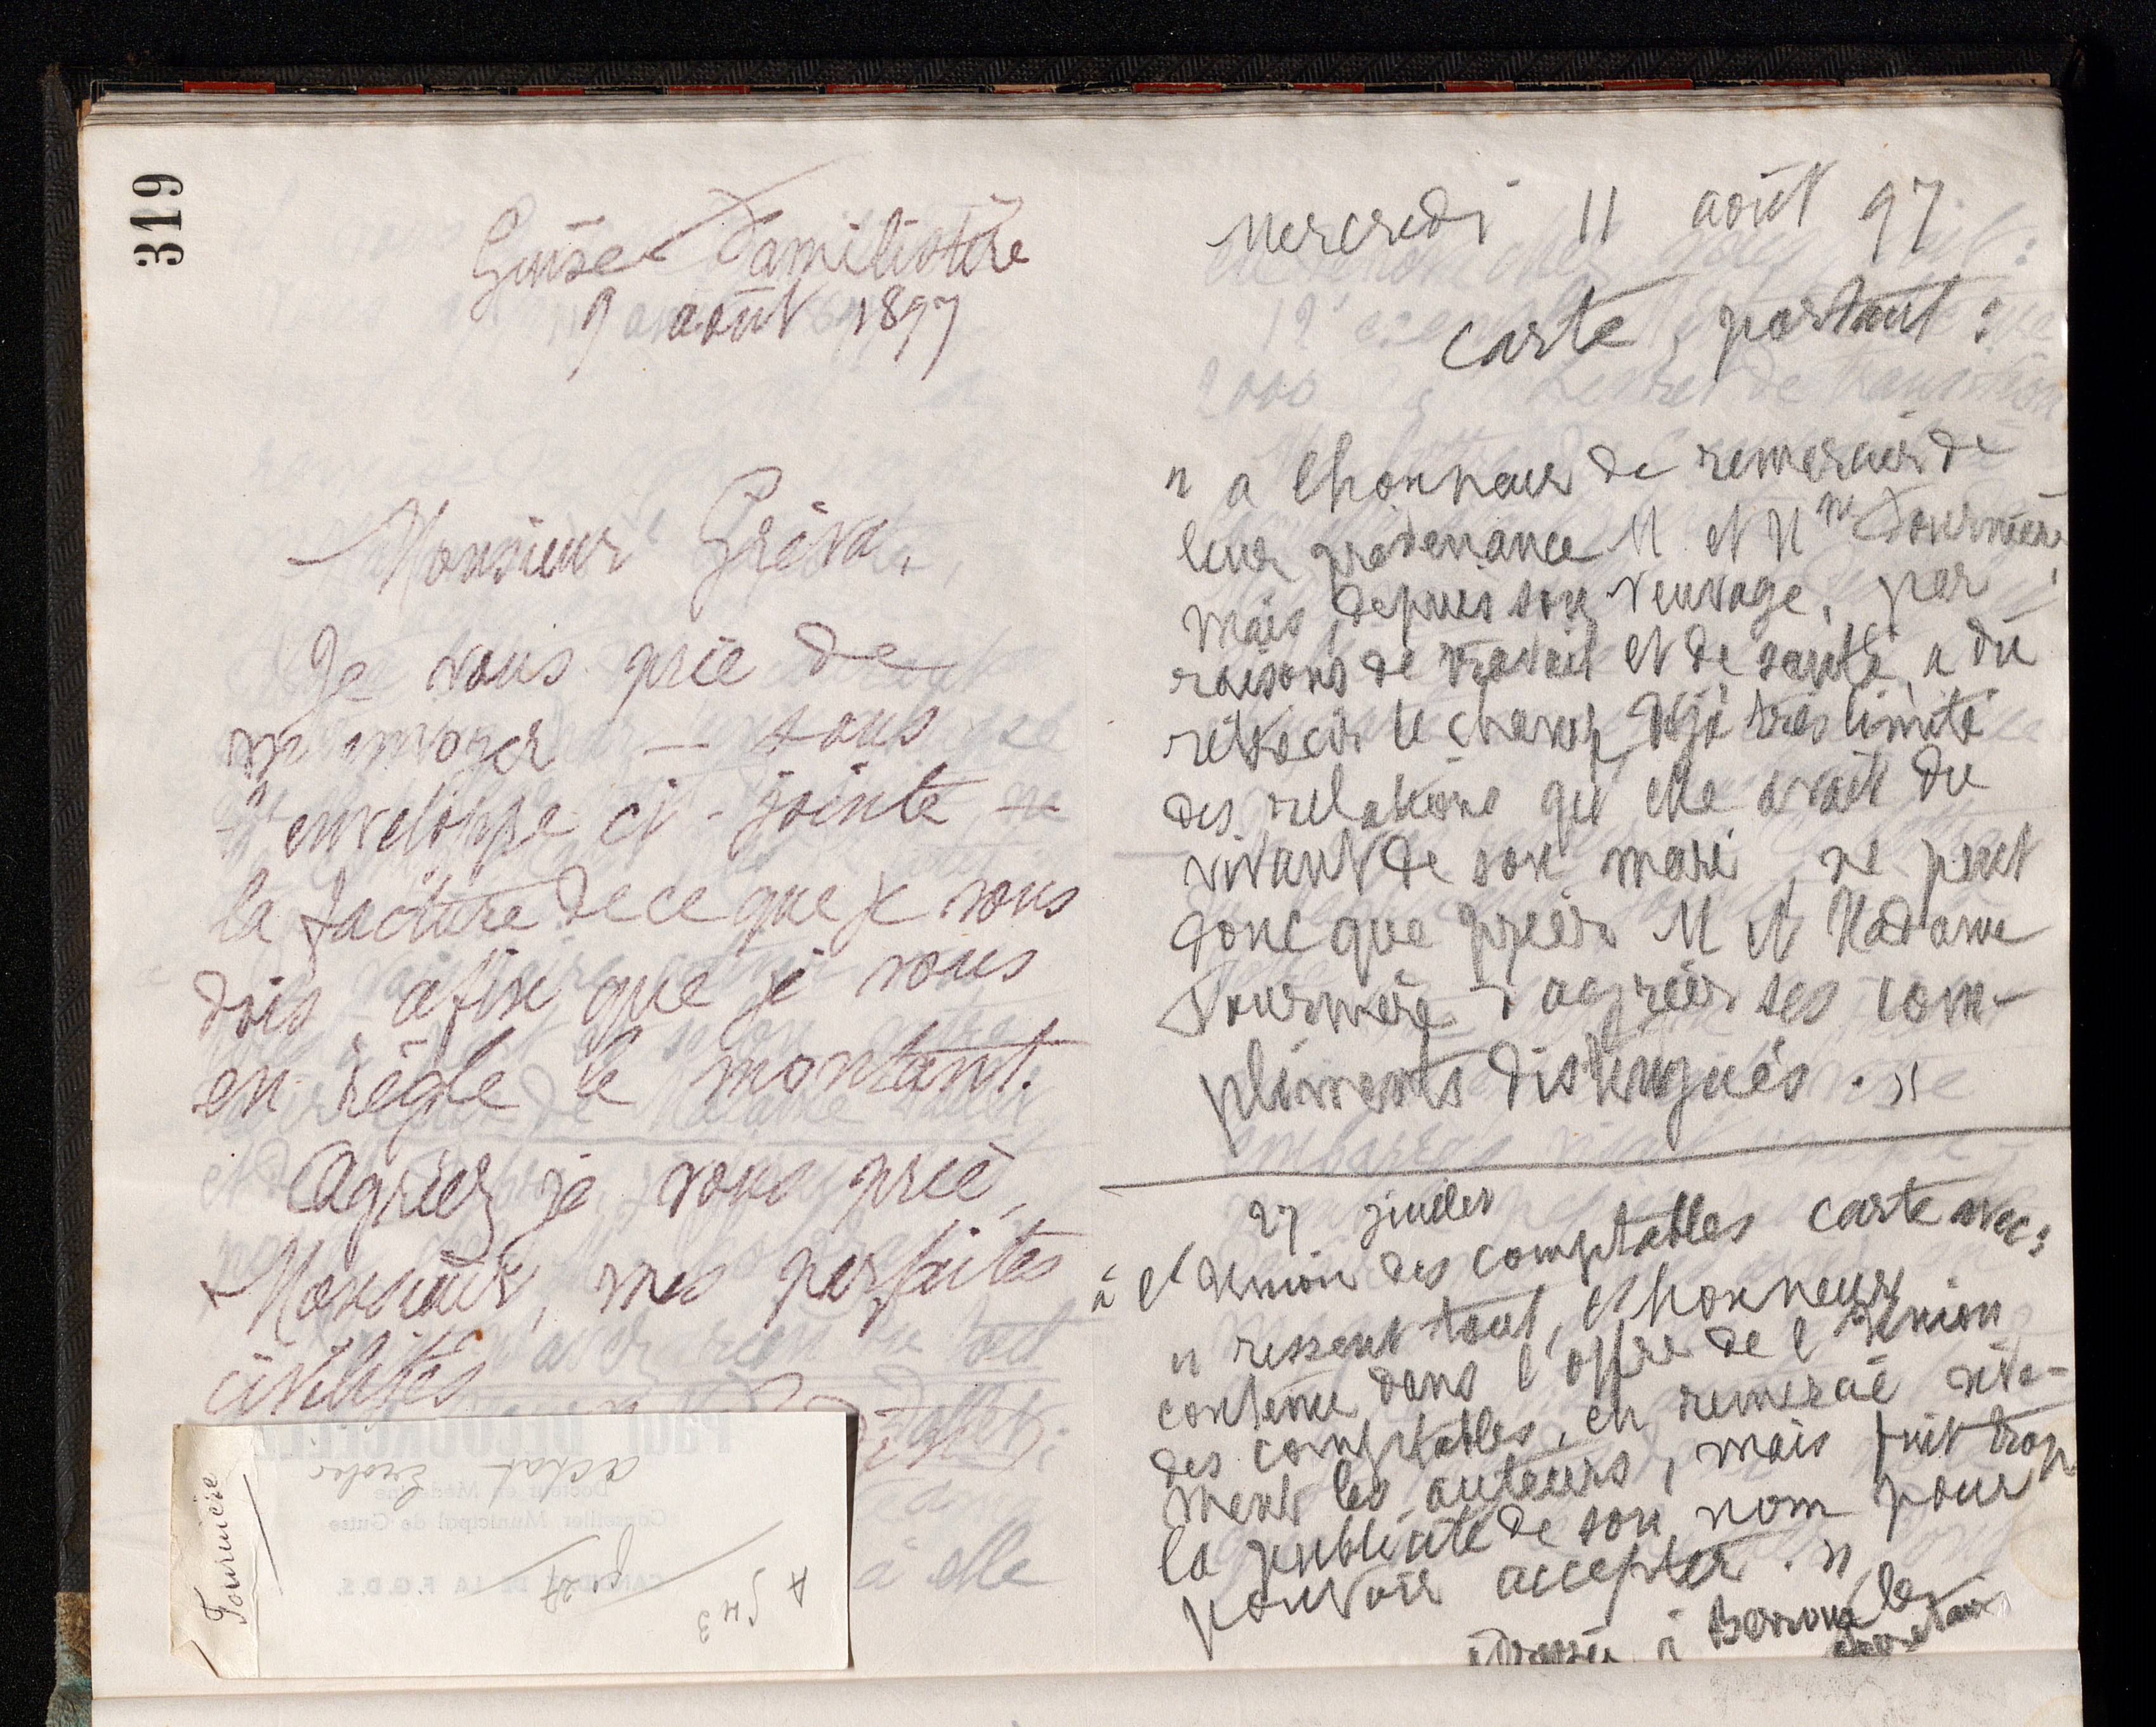 319
Guise Familistère
9 août 1897
Monsieur Gréva,
Je vous prie de
m'envoyer - sous
l'enveloppe ci-jointe -
la facture de ce que je vous
dois, afin que je vous
en règle le montant.
Agréez, je vous prie,
Monsieur, mes parfaites
civilités
Fournière
à elle
Mercredi 11 août 97
carte, portant :
" a l'honneur de remercier de
leur prévenance M. et Mme Fournière,
mais, depuis son veuvage, par
raisons de travail et de santé, a dû
rétrécir le champ déjà très limité
des relations qu'elle avait du
vivant de son mari, ne peut
donc que prier M et Madame
Fournière d'agréer ses com-
pliments distingués. "
27 juillet
à l'Union des comptables carte avec :
" ressent tout l'honneur
contenu dans l'offre de l'Union
des comptables, en remercie vive-
ment les auteurs, mais fuit trop
la publicité de son nom pour
pouvoir accepter. "
adressée à le